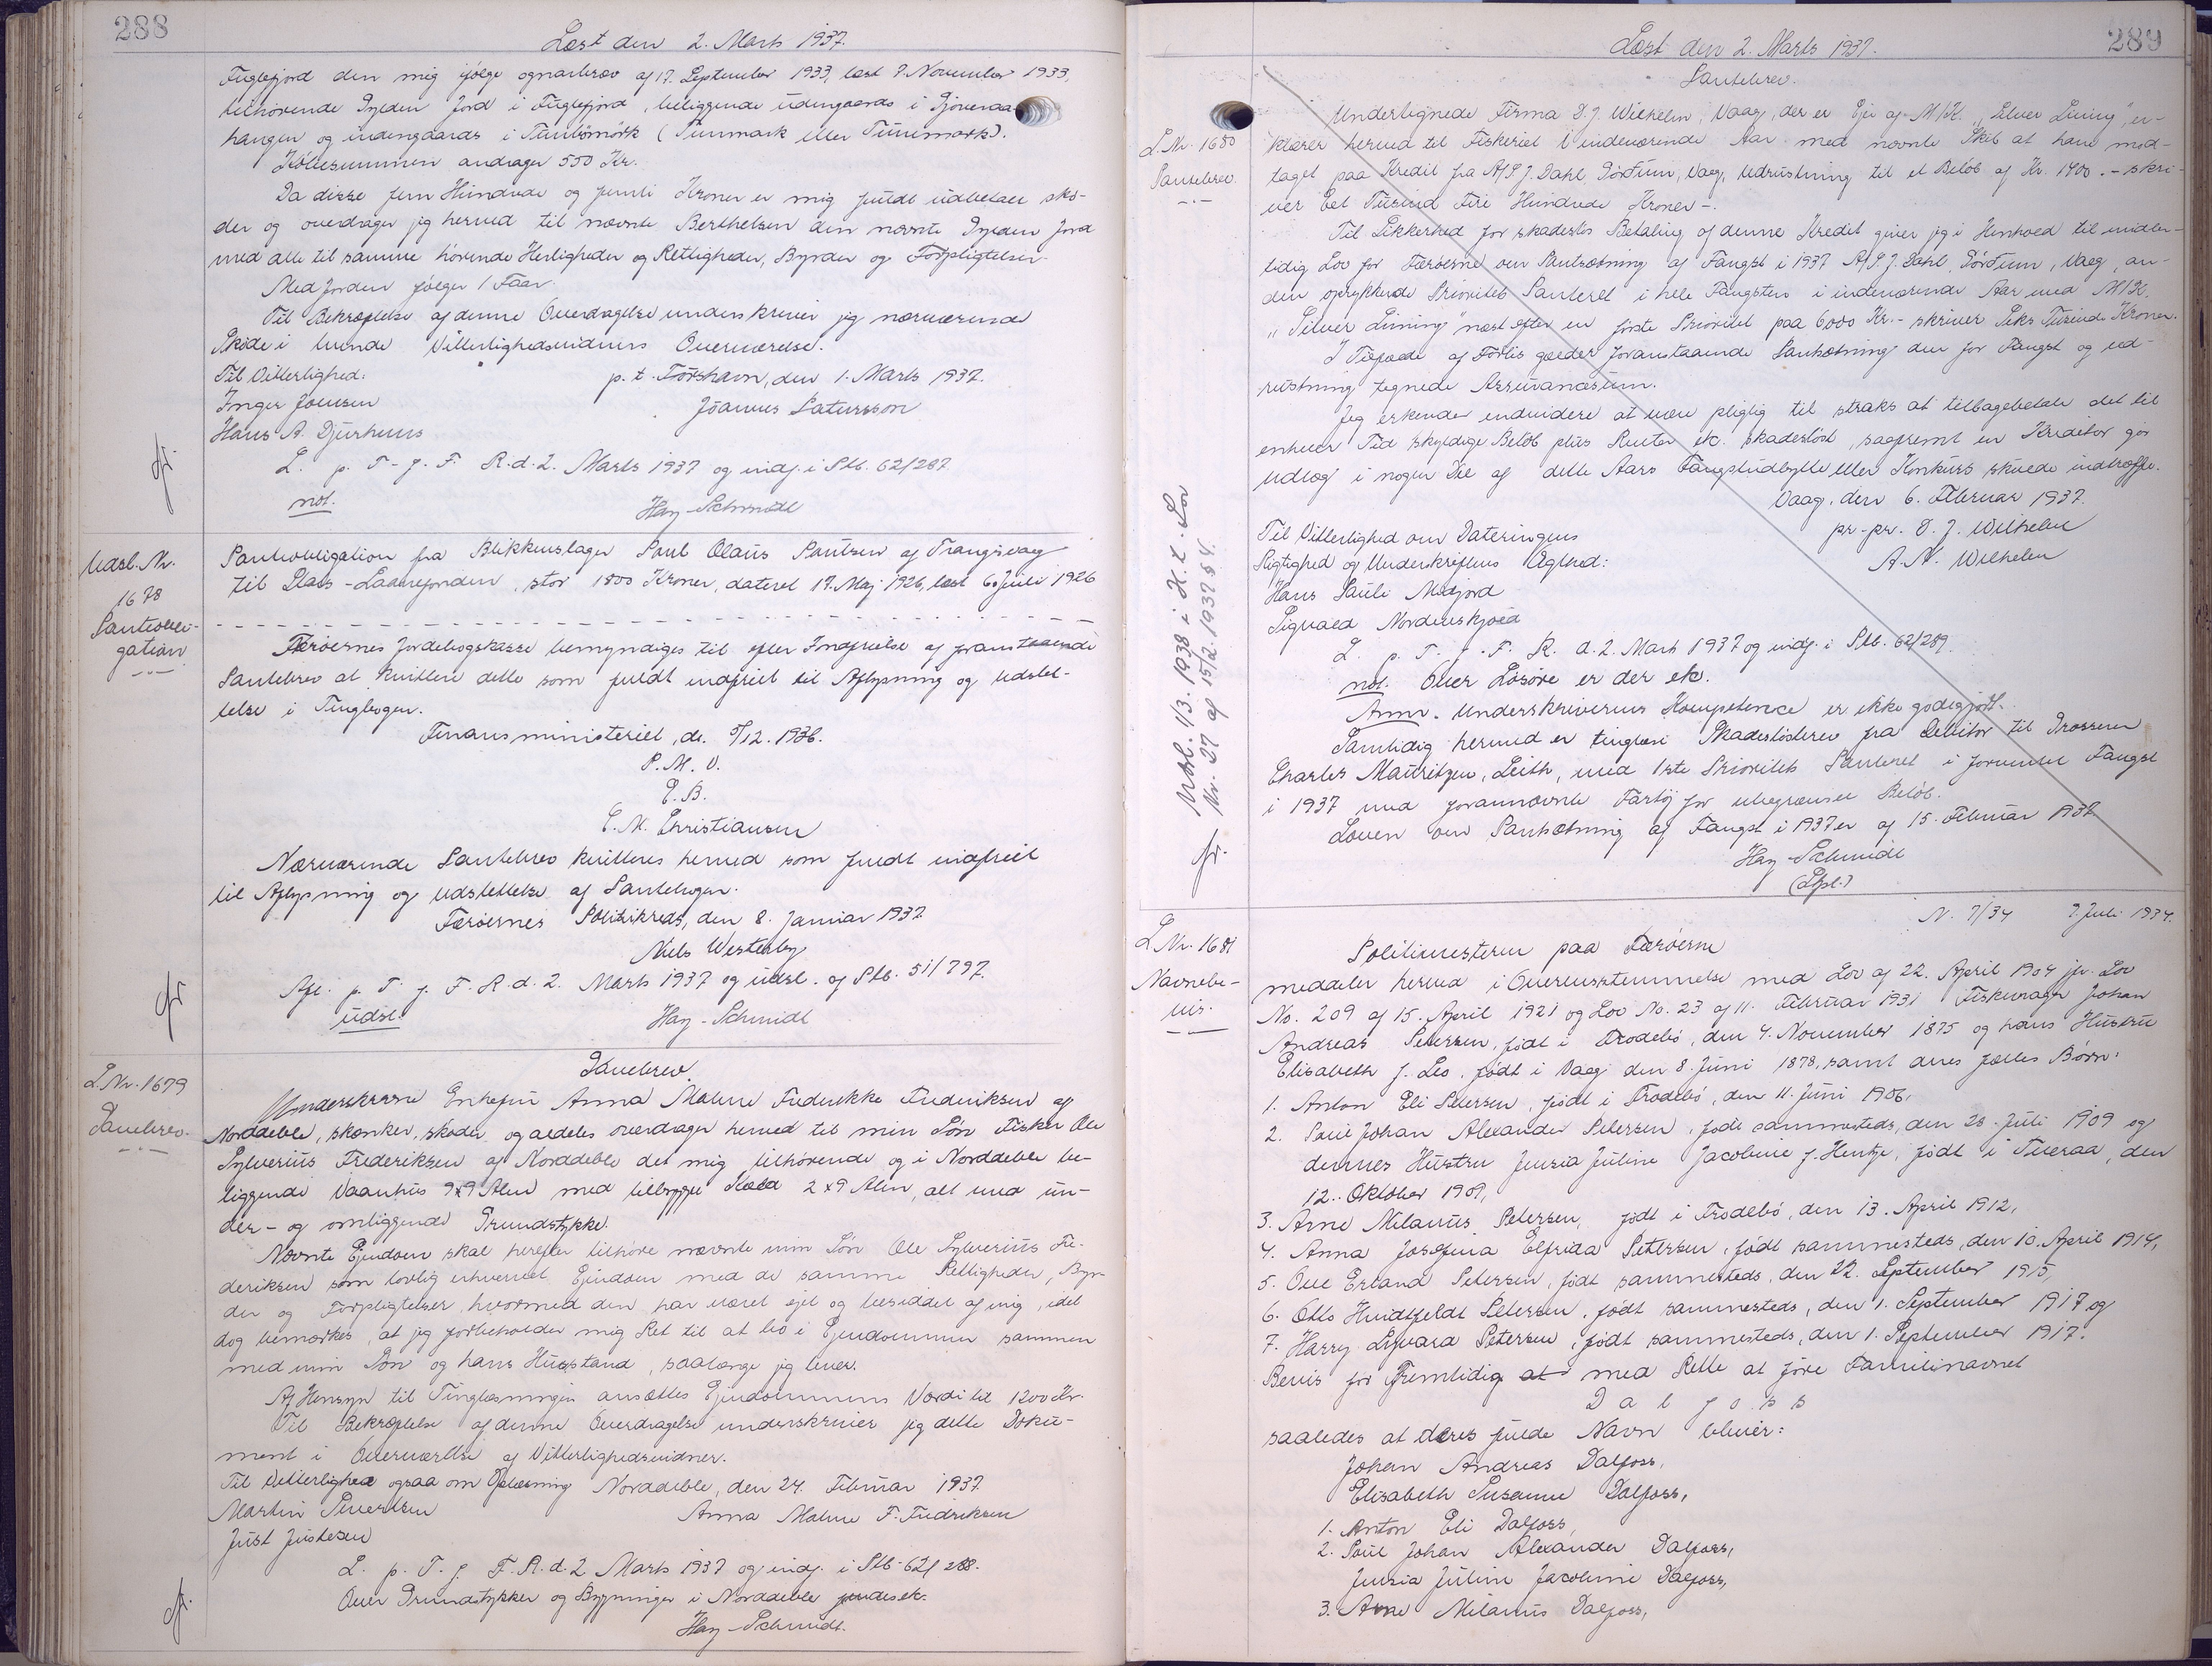 288
Læst den 2. Marts 1937.
Fuglefjord den mig ifølge ognarbrev af 17. September 1933, læst 7. November 1933,
tilhørende Gylden Jord i Fuglefjord, beliggende udengaards i Gjoveraa
hangur og indengaards i Tunbmørk (Tunmark eller Tunmark).
Købesummen andrager 550 Kr.
Da disse fem Hundrede og femti Kroner er mig fuldt udbetalt skø-
der og overdrager jeg herved til nævnte Berthelsen den nævnte Gylden Jord
med alle til samme hørende Herligheder og Rettigheder, Byrder og Forpligtelser.
Med Jorden følger 1 Faar.
Til Bekræftelse af denne Overdragelse underskriver jeg nærværende
Skøde i tvende Vitterlighedsvidners Overværelse.
Til Vitterlighed: p. t. Tórshavn, den 1. Marts 1937.
Inger Joensen Jóannus Patursson
Hans A. Djurhuus
L. p. T. f. F. R. d. 2. Marts 1937 og indf. i Ptb. 62/287.
not. Hay-Schmidt
Udsl. Nr.
1678
Pantobli-
gation
Pantobligation fra Blikkenslager Poul Olaus Poulsen af Trangisvaag
til Stats-Laanefonden, stor 1800 Kroner, dateret 17. Maj 1926, læst 6. Juli 1926
Færøernes Jordebogskasse bemyndiges til efter Indfrielse af foranstaaende
Pantebrev at kvittere dette som fuldt indfriet til Aflysning og Udslet-
telse i Tingbogen.
Finansministeriet, d. 5/12. 1936.
P. M. V.
E. B.
E. M. Christiansen
Nærværende Pantebrev kvitteres herved som fuldt indfriet
til Aflysning og Udslettelse af Pantebogen.
Færøernes Politikreds, den 8. Januar 1937.
Niels Westerby
Afl. p. T. f. F. R. d. 2. Marts 1937 og udsl. af Ptb. 51/797.
udsl. Hay-Schmidt
L. Nr. 1679
Gavebrev.
Gavebrev.
Underskrevne Enkefru Anna Malene Frederikke Frederiksen af
Norddeble, skænker, skøder og aldeles overdrager herved til min Søn Fisker Ole
Sylverius Frederiksen af Norddeble det mig tilhørende og i Norddeble be-
liggende Vaanhus 9x9 Alen med tilbygget Skeld 2x9 Alen, alt med un-
der- og omliggende Grundstykke.
Nævnte Ejendom skal herefter tilhøre nævnte min Søn Ole Sylverius Fre-
deriksen som lovlig erhvervet Ejendom med de samme Rettigheder, Byr-
der og Forpligtelser, hvormed den har været ejet og besiddet af mig, idet
dog bemærkes, at jeg forbeholder mig Ret til at bo i Ejendommen sammen
med min Søn og hans Husstand, saalænge jeg lever.
Af Hensyn til Tinglæsningen ansættes Ejendommens Værdi til 1200 Kr.
Til Bekræftelse af denne Overdragelse underskriver jeg dette Doku-
ment i Overværelse af Vitterlighedsvidner.
Til Vitterlighed ogsaa om Oplæsning Norddeble, den 24. Februar 1937.
Martin Sivertsen Anna Malene F. Fredriksen
Just Justesen
L. p. T. f. F. R. d. 2 Marts 1937 og indf. i Ptb. 62/288.
Over Grundstykker og Bygninger i Norddeble findes ek.
Hay-Schmidt.
289
Læst den 2. Marts 1937.
L. Nr. 1680
Pantebrev.
Pantebrev.
Undertegnede Firma D. J. Wilhelm, Vaag, der er Ejer af M/K. "Silver Lining", er-
klærer herved til Fiskeriet i indeværende Aar med nævnte Skib at have mod-
taget paa Kredit fra A/S J. Dahl, Pórtum, Vaag, Udrustning til et Beløb af Kr. 1400.- skri-
ver Eet Tusind Fire Hundrede Kroner -.
Til Sikkerhed for skadesløs Betaling af denne Kredit giver jeg i Henhold til midler-
tidig Lov for Færøerne om Pantsætning af Fangst i 1937 A/S J. Dahl, Pórtum, Vaag, an-
den oprykkende Prioritets Panteret i hele Fangsten i indeværende Aar med M/K.
"Silver Lining" næst efter en første Prioritet paa 6000 Kr.- skriver Seks Tusinde Kroner.
I Tilfælde af Forlis gælder foranstaaende Pantsætning den for Fangst og ud-
rustning tegnede Assurancesum.
Jeg erkender endvidere at være pligtig til straks at tilbagebetale det til
enhver Tid skyldige Beløb plus Renter etc. skadesløst, saafremt en Kreditor gør
Udlæg i nogen Del af dette Aars Fangstudbytte eller Konkurs skulde indtræffe.
Vaag, den 6. Februar 1937.
pr. pr. D. J. Wilhelm
A. N. Wilhelm
Til Vitterlighed om Dateringens
Rigtighed og Underskriftens Ægthed:
Hans Pauli Midjord
Sigvald Nordenskjold
L. p. T. f. F. R. d. 2. Marts 1937 og indf. i Ptb. 62/289.
not. Over Løsøre er der ek.
Anm. Underskriverens Kompetence er ikke godtgjort.
Samtidig hermed er tinglæst Skadesløsbrev fra Debitor til Grosserer
Charles Mauritzen, Leith, med 1ste Prioritets Panteret i forventet Fangst
i 1937 med forannævnte Fartøj for ubegrænset Beløb.
Loven om Pantsætning af Fangst i 1937 er af 15. Februar 1937.
Hay-Schmidt
Udsl. 1/3. 1938 i H. t. Lov
Nr. 27 af 15/2. 1937 § 4.
L. Nr. 1681
Navnebe-
vis.
N. 7/34 7. Juli 1934.
Politimesteren paa Færøerne
meddeler herved i Overensstemmelse med Lov af 22. April 1904 jv. Lov
No. 209 af 15. April 1921 og Lov No. 23 af 11. Februar 1931 Fiskevrager Johan
Andreas Petersen, født i Frodebø, den 4. November 1875 og hans Hustru
Elisabeth f. Leo, født i Vaag den 8. Juni 1878, samt deres fælles Børn:
1. Anton Eli Petersen, født i Frodebø, den 11. Juni 1906,
2. Poul Johan Alexander Petersen, født sammesteds, den 28. Juli 1909 og
dennes Hustru Jensia Juline Jacobine f. Hentze, født i Tveraa, den
12. Oktober 1909,
3. Arne Milanus Petersen, født i Frodebø, den 13. April 1912,
4. Anna Josefina Elfrida Petersen, født sammesteds, den 10. April 1914,
5. Ove Erland Petersen, født sammesteds, den 22. September 1915,
6. Otto Hvidtfeldt Petersen, født sammesteds, den 1. September 1917 og
7. Harry Sigvard Petersen, født sammesteds, den 1. September 1917.
Bevis for fremtidig at med Rette at føre Familienavnet
D a l f o s s
saaledes at deres fulde Navn bliver:
Johan Andreas Dalfoss,
Elisabeth Susanne Dalfoss,
1. Anton Eli Dalfoss,
2. Poul Johan Alexander Dalfoss,
Jensia Juline Jacobine Dalfoss,
3. Arne Milanus Dalfoss,